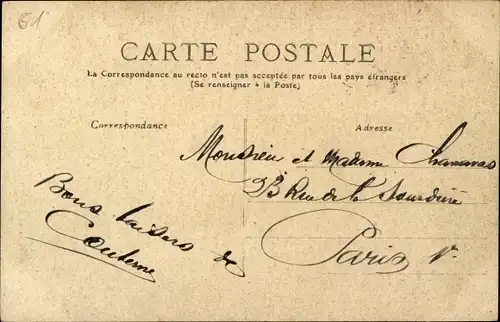 61
CARTE POSTALE
La Correspondance au recto n'est pas acceptée par tous les pays étrangers
(Se renseigner à la Poste)
Correspondance
Adresse
Monsieur et Madame
23 Rue de la Sourdière
Paris 1er
Bons baisers de
Couterne